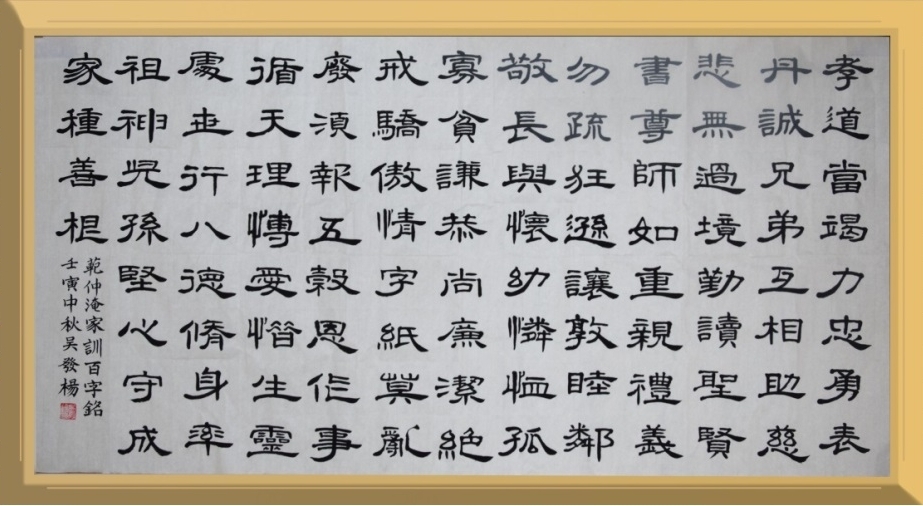 孝道當竭力忠勇表
丹誠兄弟互相助慈
悲無過境勤讀聖賢
書尊師如重親禮義
勿疏狂遜讓敦睦鄰
敬長與懷幼憐恤孤
寡貧謙恭尚廉潔絕
戒驕傲情字紙莫亂
廢須報五穀恩作事
循天理愽愛惜生靈
處世行八德脩身率
祖神児孫堅心守成
家種善根
範仲淹家訓百字銘
壬寅中秋吳發楊